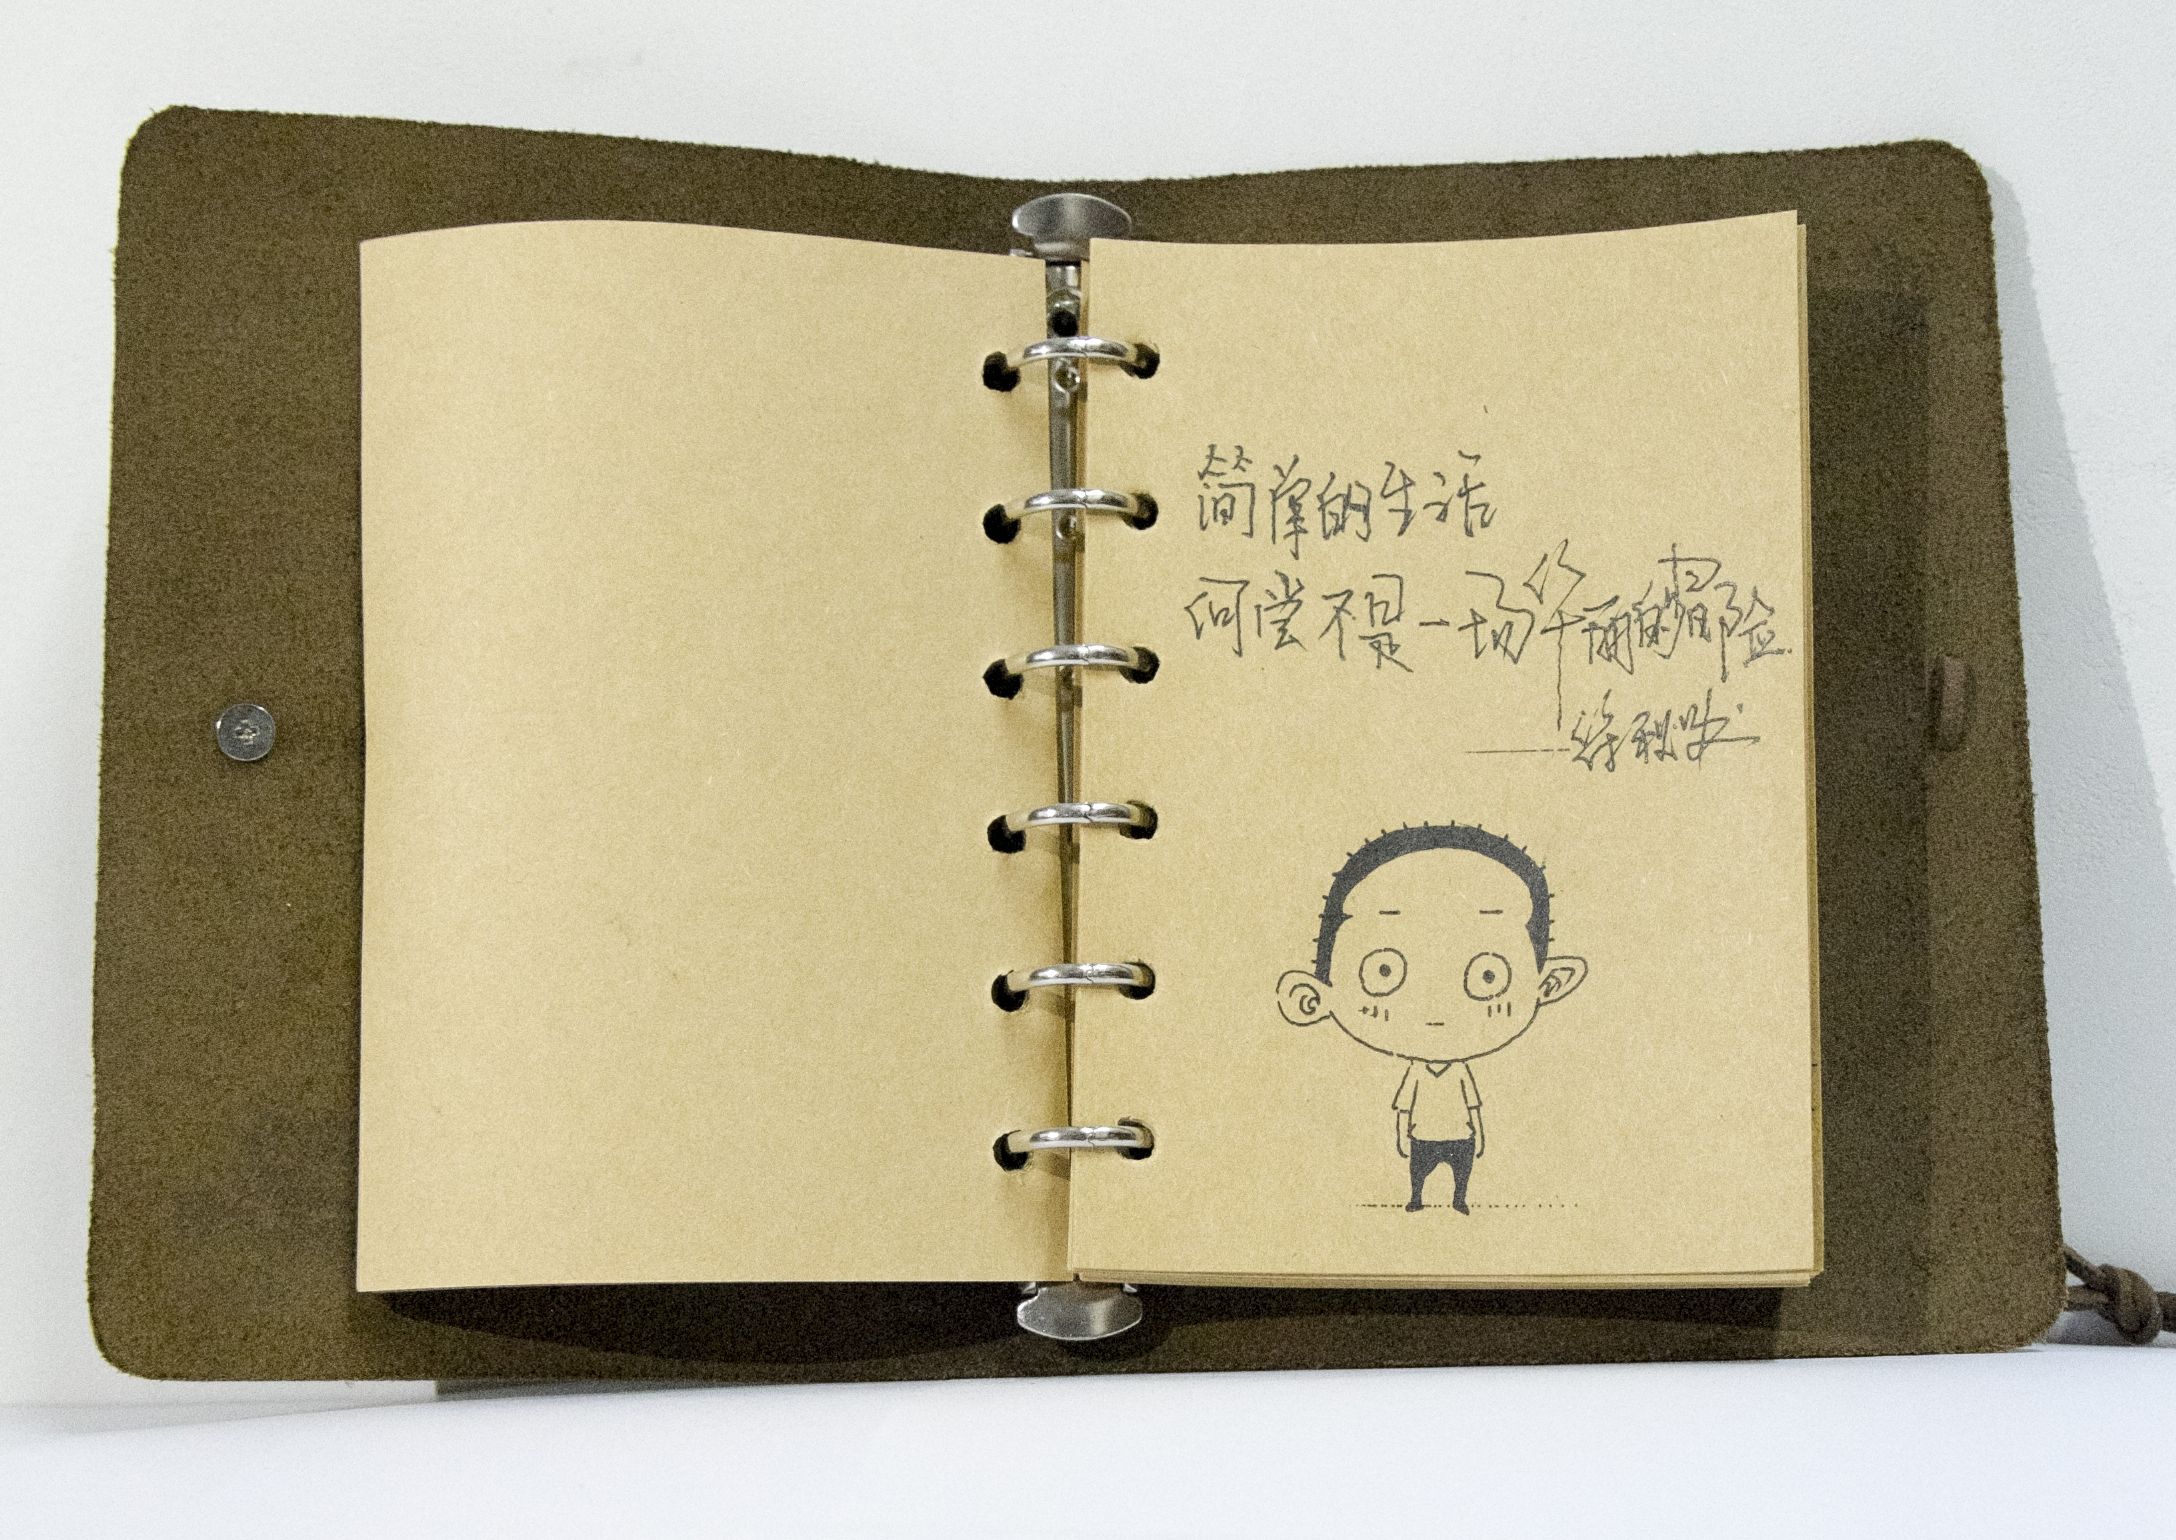 简单的生活
何尝不是一场华丽的冒险
——徐秋